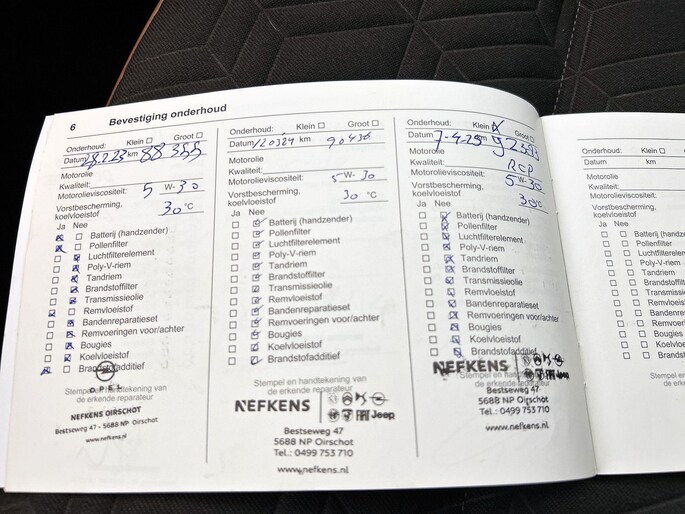 6 Bevestiging onderhoud
Onderhoud: Klein Groot
Datum km 88 355
Motorolie
Kwaliteit:
Motorolieviscositeit: 5 W- 30
Vorstbescherming, koelvloeistof 30 °C
Ja Nee
Batterij (handzender)
Pollenfilter
Luchtfilterelement
Poly-V-riem
Tandriem
Brandstoffilter
Transmissieolie
Remvloeistof
Bandenreparatieset
Remvoeringen voor/achter
Bougies
Koelvloeistof
Brandstofadditief
OPEL
Stempel en handtekening van
de erkende reparateur
NEFKENS OIRSCHOT
Bestseweg 47 - 5688 NP Oirschot
www.nefkens.nl
Onderhoud: Klein Groot
Datum 120324 km 90430
Motorolie
Kwaliteit:
Motorolieviscositeit: 5 W- 30
Vorstbescherming,
koelvloeistof 30 °C
Ja Nee
Batterij (handzender)
Pollenfilter
Luchtfilterelement
Poly-V-riem
Tandriem
Brandstoffilter
Transmissieolie
Remvloeistof
Bandenreparatieset
Remvoeringen voor/achter
Bougies
Koelvloeistof
Brandstofadditief
Stempel en handtekening van
de erkende reparateur
NEFKENS Jeep
Bestseweg 47
5688 NP Oirschot
Tel.: 0499 753 710
www.nefkens.nl
Onderhoud: Klein Groot
Datum 7-4-25 km 92393
Motorolie
Kwaliteit: RCP
Motorolieviscositeit: 5 W- 30
Vorstbescherming,
koelvloeistof 30°C
Ja Nee
Batterij (handzender)
Pollenfilter
Luchtfilterelement
Poly-V-riem
Tandriem
Brandstoffilter
Transmissieolie
Remvloeistof
Bandenreparatieset
Remvoeringen voor/achter
Bougies
Koelvloeistof
Brandstofadditief
NEFKENS Jeep
Stempel en handtekening van
de erkende reparateur
Bestseweg 47
5688 NP Oirschot
Tel.: 0499 753 710
www.nefkens.nl
Onderhoud: Klein Groot
Datum km
Motorolie
Kwaliteit:
Motorolieviscositeit:
Vorstbescherming,
koelvloeistof
Ja Nee
Pollenfilter
Poly-V-riem
Tandriem
Brandstoffilter
Remvloeistof
Bougies